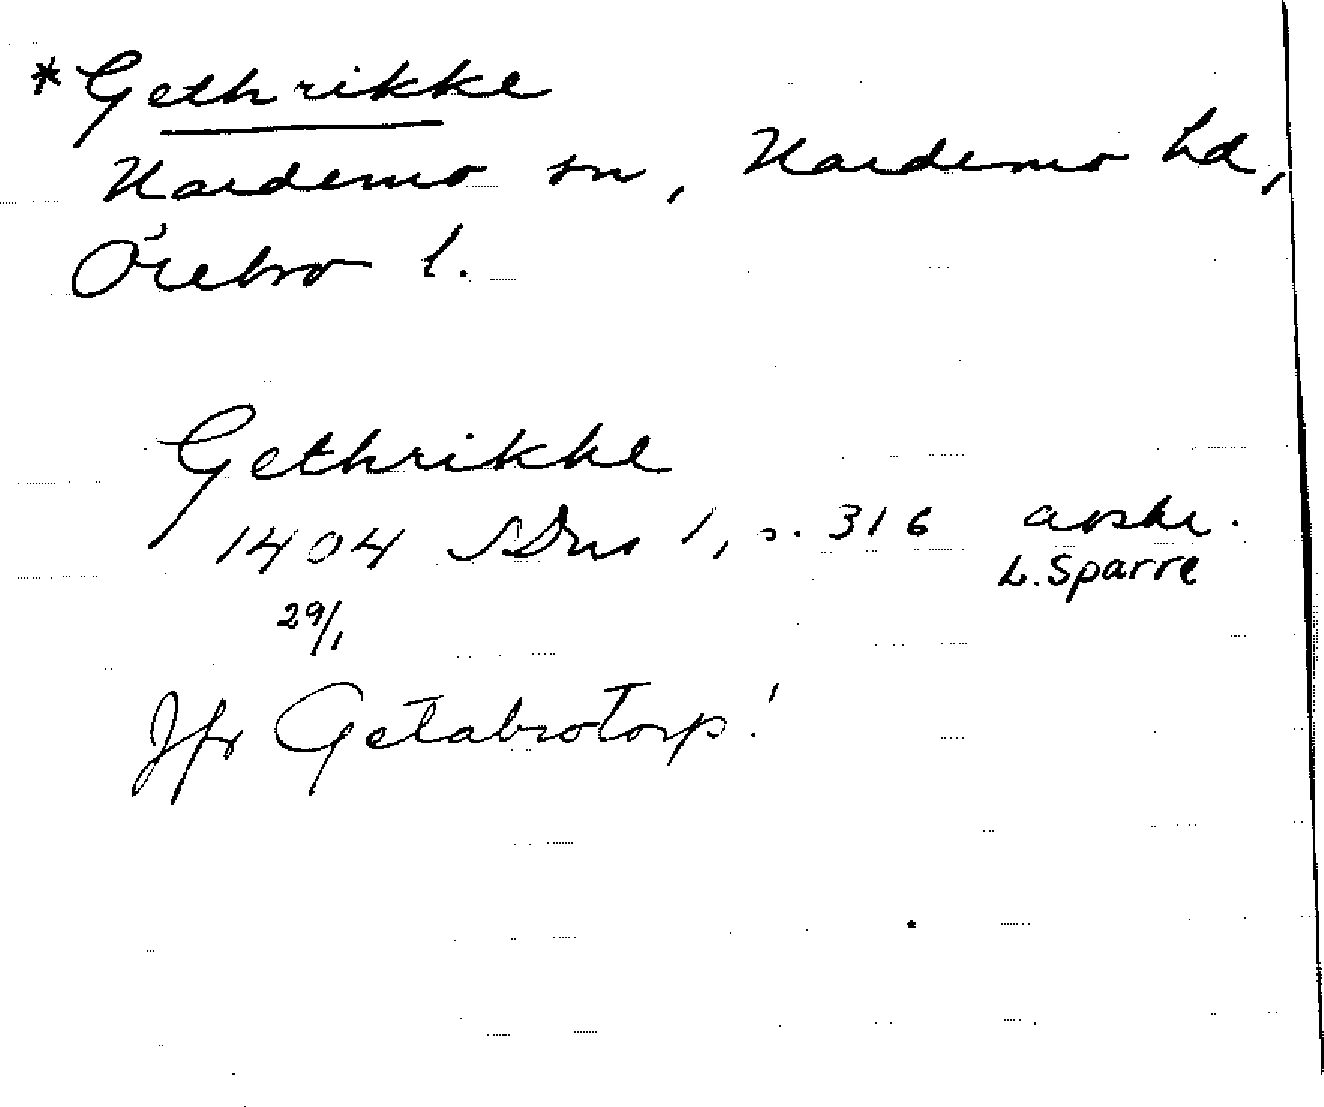 *Gethrikke
Hardemo sn, Hardemo hd,
Örebro l.
Gethrikke
1404 SDns 1, s. 316 avskr.
L. Sparre
29/1
Jfr Getabrotorp!